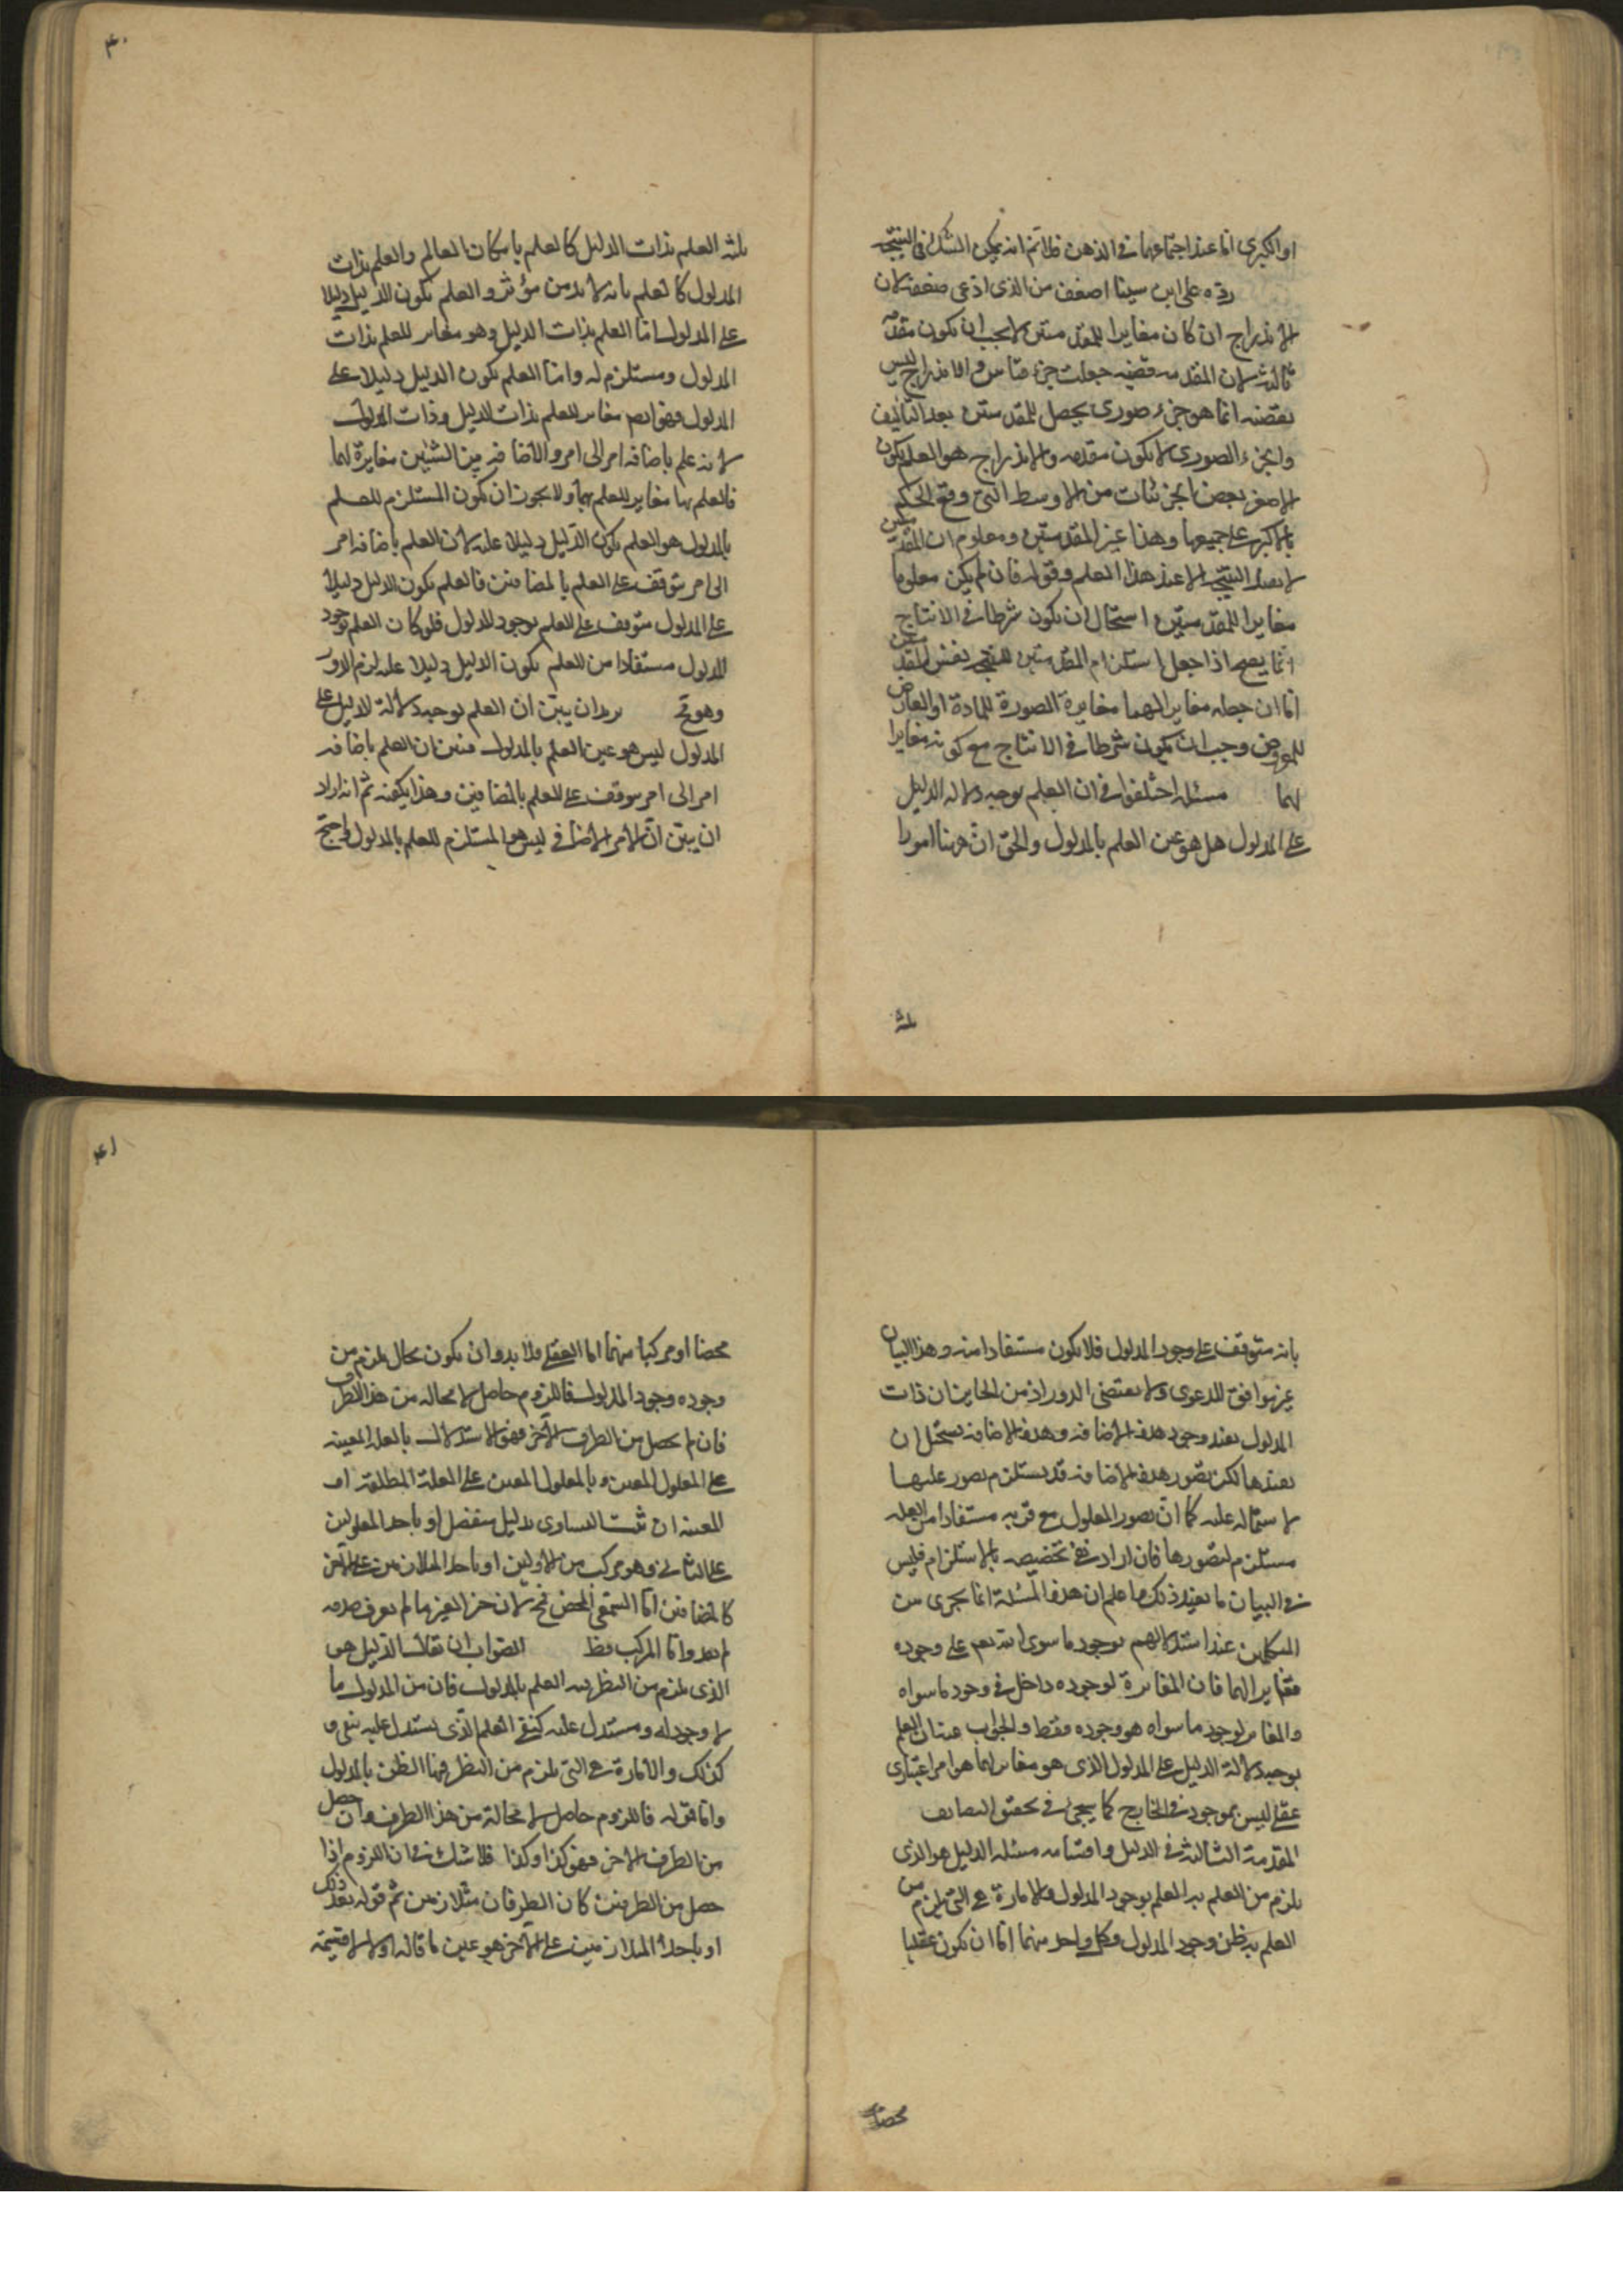 او الكبرى اما عند اجتماعهما فى الذهن فلا نم انه يمكن الشك فى النتيجه
ردّه على ابن سينا اضعف من الذى ادعى ضعفه لان
الاندراج ان كان مغايرا للمقدمتين لا يجب ان يكون مقدمة
ثالثة لان المقدمه قضيه جعلت جزء قياس والاندراج ليس
بقضيه انما هو جزء صورى يحصل للمقدمتين بعد التاليف
والجزء الصورى لا يكون مقدمه والاندراج هو العلم بكون
الاصغر بعض الجزئيات من الاوسط التى وقع الحكم
بالاكبر على جميعها وهذا غير المقدمتين ومعلوم ان المقدمتين
لا تفيد النتيجه الا عند هذا العلم وقوله فان لم يكن معلوما
مغايرا للمقدمتين استحال ان يكون شرطا فى الانتاج
انما يصح اذا جعل استلزام المقدمتين للنتيجه نفس المقدمتين
اما ان جعله مغايرا لهما مغايرة الصورة للمادة او العارض
للمعروض وجب ان يكون شرطا فى الانتاج مع كونه مغايرا
لهما مسئله اختلفوا فى ان العلم بوجه دلاله الدليل
على المدلول هل هو عين العلم بالمدلول والحق ان هنا امورا
ثلثة
٤٠
ثلثة العلم بذات الدليل كالعلم بامكان العالم والعلم بذات
المدلول كالعلم بانه لا بد من مؤثر والعلم بكون الدليل دليلا
على المدلول اما العلم بذات الدليل وهو مغاير للعلم بذات
المدلول ومستلزم له واما العلم بكون الدليل دليلا على
المدلول فهو ايضا مغاير للعلم بذات الدليل وذات المدلول
لانه علم باضافه امر الى امر والاضافه بين الشيئين مغايرة لهما
فالعلم بها مغاير للعلم بهما ولا يجوز ان يكون المستلزم للعلم
بالمدلول هو العلم بكون الدليل دليلا عليه لان العلم باضافه امر
الى امر يتوقف على العلم بالمضافين فالعلم بكون الدليل دليلا
على المدلول متوقف على العلم بوجود المدلول فلو كان العلم بوجود
المدلول مستفادا من العلم بكون الدليل دليلا عليه لزم الدور
وهو مح يريد ان يبين ان العلم بوجه دلالة الدليل على
المدلول ليس هو عين العلم بالمدلول فبين ان العلم باضافه
امر الى امر موقوف على العلم بالمضافين وهذا يكفيه ثم انه اراد
ان يبين ان الامر الاضافى ليس هو المستلزم للعلم بالمدلول واحتج
بانه متوقف على وجود المدلول فلا يكون مستفادا منه وهذا البيان
غير موافق للدعوى ولا يقتضى الدور اذ من الجايز ان ذات
المدلول يفيد وجود هذه الاضافه وهذه الاضافه يستحيل ان
تفيدها لكن تصور هذه الاضافه قد يستلزم تصور علتها
لاشتماله عليه كما ان تصور المعلول مع قربه مستفادا من العله
مستلزم لتصورها فان اراد نفى تخصيصه بالاستلزام فليس
فى البيان ما يفيد ذلك واعلم ان هذه المسئلة انما يجرى بين
المتكلمين عند استدلالهم بوجود ما سوى الله تعم على وجوده
فالمغاير لهما فان المغايرة لوجوده داخل فى وجود ما سواه
والمغاير لوجود ما سواه هو وجوده فقط والجواب عنه ان العلم
بوجه دلالة الدليل على المدلول الذى هو مغاير لهما هو امر اعتبارى
عقلى ليس بموجود فى الخارج كما يجىء فى تحقق التضايف
المقدمة الثالثة فى الدليل واقسامه مسئله الدليل هو الذى
يلزم من العلم به العلم بوجود المدلول والامارة هى التى يلزم من
العلم بها ظن وجود المدلول وكل واحد منهما اما ان يكون عقليا
محضا
٤١
محضا او مركبا منهما اما العقلى فلا بد وان يكون بحال يلزم من
وجوده وجود المدلول فاللزوم حاصل لا محاله من هذا الطرف
فان لم يحصل من الطرف الآخر فهو الاستدلال بالعلة المعينه
على المعلول المعين وبالمعلول المعين على العلة المطلقة او
المعينه ان ثبت التساوى بدليل منفصل او باحد المعلولين
على الثانى وهو مركب من الاولين او باحد المتلازمين على الآخر
كالمضافين اما السمعى المحض فمح لان خبر الغير ما لم يعرف صدقه
لم يفد واما المركب فظ الصواب ان يقال الدليل هو
الذى يلزم من النظر فيه العلم بالمدلول فان من المدلول ما
لا وجود له ومستدل عليه كنفى العلم الذى يستدل عليه بنفى و
كذلك والامارة هى التى يلزم من النظر فيها الظن بالمدلول
واما قوله فاللزوم حاصل لا محالة من هذا الطرف وان حصل
من الطرف الاخر فهو كذا وكذا فلا شك فى ان اللزوم اذا
حصل من الطرفين كان الطرفان متلازمين ثم قوله بعد ذلك
او باحد المتلازمين على الآخر هو عين ما قاله اولا لا قسيمه